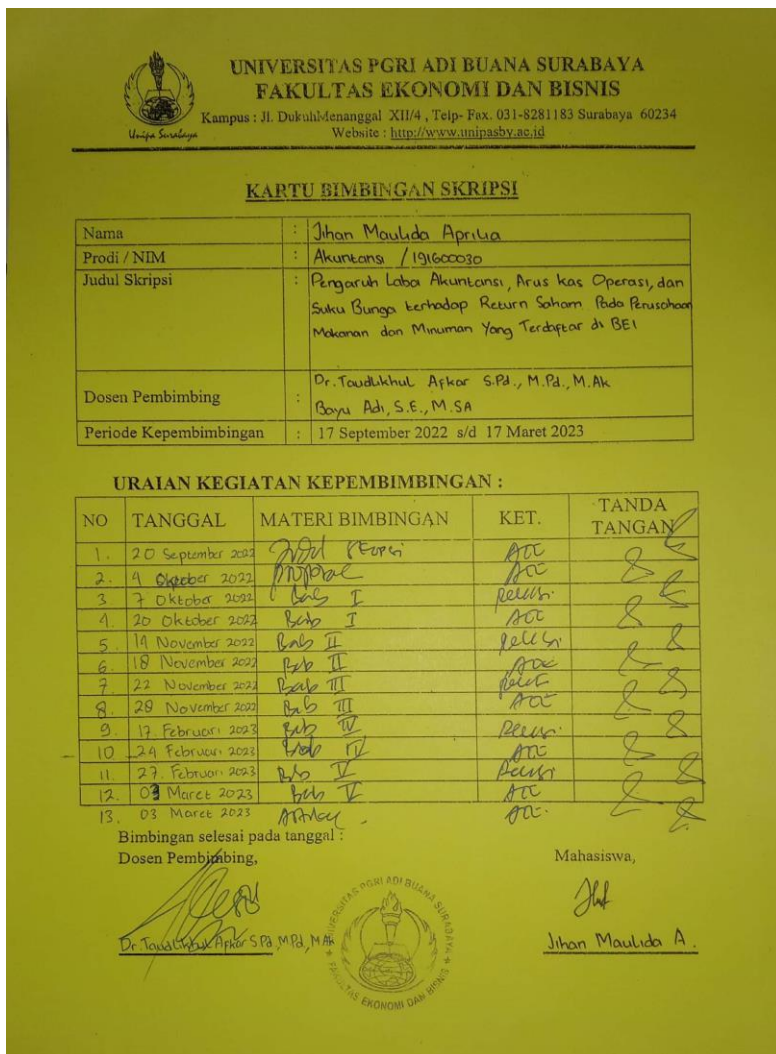 UNIVERSITAS PGRI ADI BUANA SURABAYA
FAKULTAS EKONOMI DAN BISNIS
Kampus : Jl. DukuhMenanggal XII/4 , Telp- Fax. 031-8281183 Surabaya 60234
Website : http://www.unipasby.ac.id
Unipa Surabaya
KARTU BIMBINGAN SKRIPSI
Nama : Jihan Maulida Aprilia
Prodi / NIM : Akuntansi / 191600030
Judul Skripsi : Pengaruh Laba Akuntansi, Arus kas Operasi, dan
Suku Bunga terhadap Return Saham Pada Perusahaan
Makanan dan Minuman Yang Terdaftar di BEI
Dosen Pembimbing : Dr. Taudlikhul Afkar S.Pd., M.Pd., M.Ak
Bayu Adi, S.E., M.SA
Periode Kepembimbingan : 17 September 2022 s/d 17 Maret 2023
URAIAN KEGIATAN KEPEMBIMBINGAN :
NO TANGGAL MATERI BIMBINGAN KET. TANDA TANGAN
1. 20 September 2022 Judul Skripsi ACC
2. 4 Oktober 2022 proposal ACC
3 7 Oktober 2022 Bab I Revisi
4. 20 Oktober 2022 Bab I ACC
5. 14 November 2022 Bab II Revisi
6. 18 November 2022 Bab II ACC
7. 22 November 2022 Bab III Revisi
8. 28 November 2022 Bab III ACC
9. 17. Februari 2023 Bab IV Revisi
10 24 Februari 2023 Bab IV ACC
11. 27. Februari 2023 Bab V Revisi
12. 03 Maret 2023 Bab V ACC
13. 03 Maret 2023 Artikel ACC.
Bimbingan selesai pada tanggal :
Dosen Pembimbing, Mahasiswa,
UNIVERSITAS PGRI ADI BUANA SURABAYA
FAKULTAS EKONOMI DAN BISNIS
Dr. Taudlikhul Afkar S.Pd, M.Pd, M.Ak Jihan Maulida A.